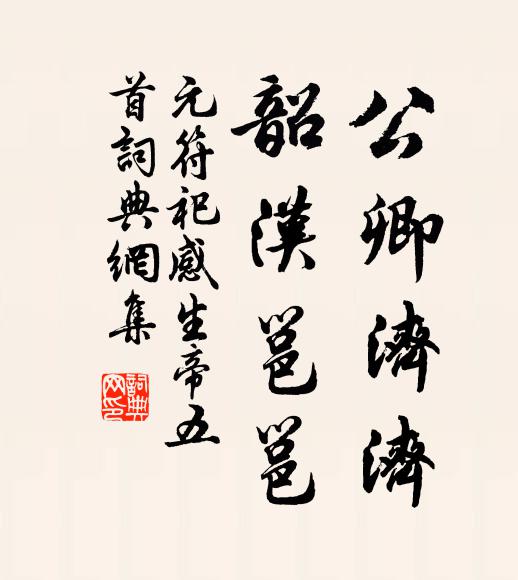 公卿濟濟
韶漢邕邕
元符祀感生帝五
首詞典網集
詞典
网印